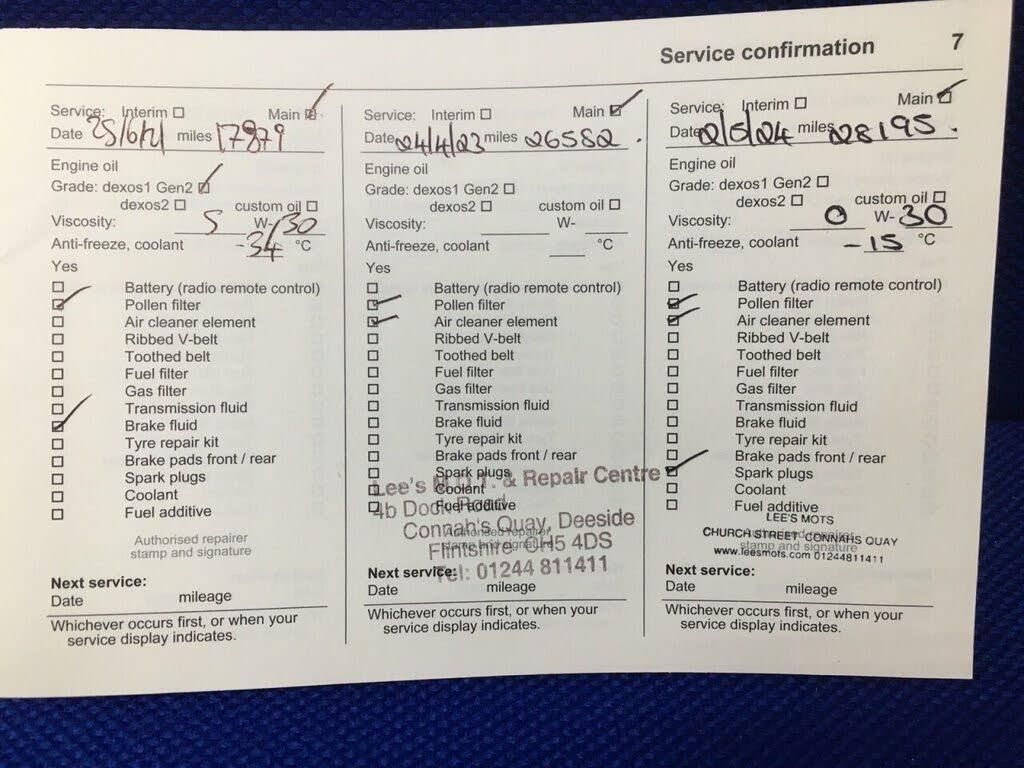 Service confirmation
7
Service: Interim
Main
Date 25/6/21 miles 17879
Engine oil
Grade: dexos1 Gen2
dexos2
custom oil
Viscosity: 5 W- 30
Anti-freeze, coolant -34 °C
Yes
Battery (radio remote control)
Pollen filter
Air cleaner element
Ribbed V-belt
Toothed belt
Fuel filter
Gas filter
Transmission fluid
Brake fluid
Tyre repair kit
Brake pads front / rear
Spark plugs
Coolant
Fuel additive
Authorised repairer
stamp and signature
Next service:
Date mileage
Whichever occurs first, or when your
service display indicates.
Service: Interim
Main
Date 24/4/23 miles 26582 .
Engine oil
Grade: dexos1 Gen2
dexos2
custom oil
Viscosity: W-
Anti-freeze, coolant °C
Yes
Battery (radio remote control)
Pollen filter
Air cleaner element
Ribbed V-belt
Toothed belt
Fuel filter
Gas filter
Transmission fluid
Brake fluid
Tyre repair kit
Brake pads front / rear
Spark plugs
Coolant
Fuel additive
Lee's M.O.T. & Repair Centre
4b Dock Road
Connah's Quay, Deeside
Flintshire CH5 4DS
Tel: 01244 811411
Authorised repairer
stamp and signature
Next service:
Date mileage
Whichever occurs first, or when your
service display indicates.
Service: Interim
Main
Date 2/5/24 miles 28195 .
Engine oil
Grade: dexos1 Gen2
dexos2
custom oil
Viscosity: 0 W- 30
Anti-freeze, coolant -15 °C
Yes
Battery (radio remote control)
Pollen filter
Air cleaner element
Ribbed V-belt
Toothed belt
Fuel filter
Gas filter
Transmission fluid
Brake fluid
Tyre repair kit
Brake pads front / rear
Spark plugs
Coolant
Fuel additive
LEE'S MOTS
CHURCH STREET CONNAHS QUAY
www.leesmots.com 01244811411
Authorised repairer
stamp and signature
Next service:
Date mileage
Whichever occurs first, or when your
service display indicates.